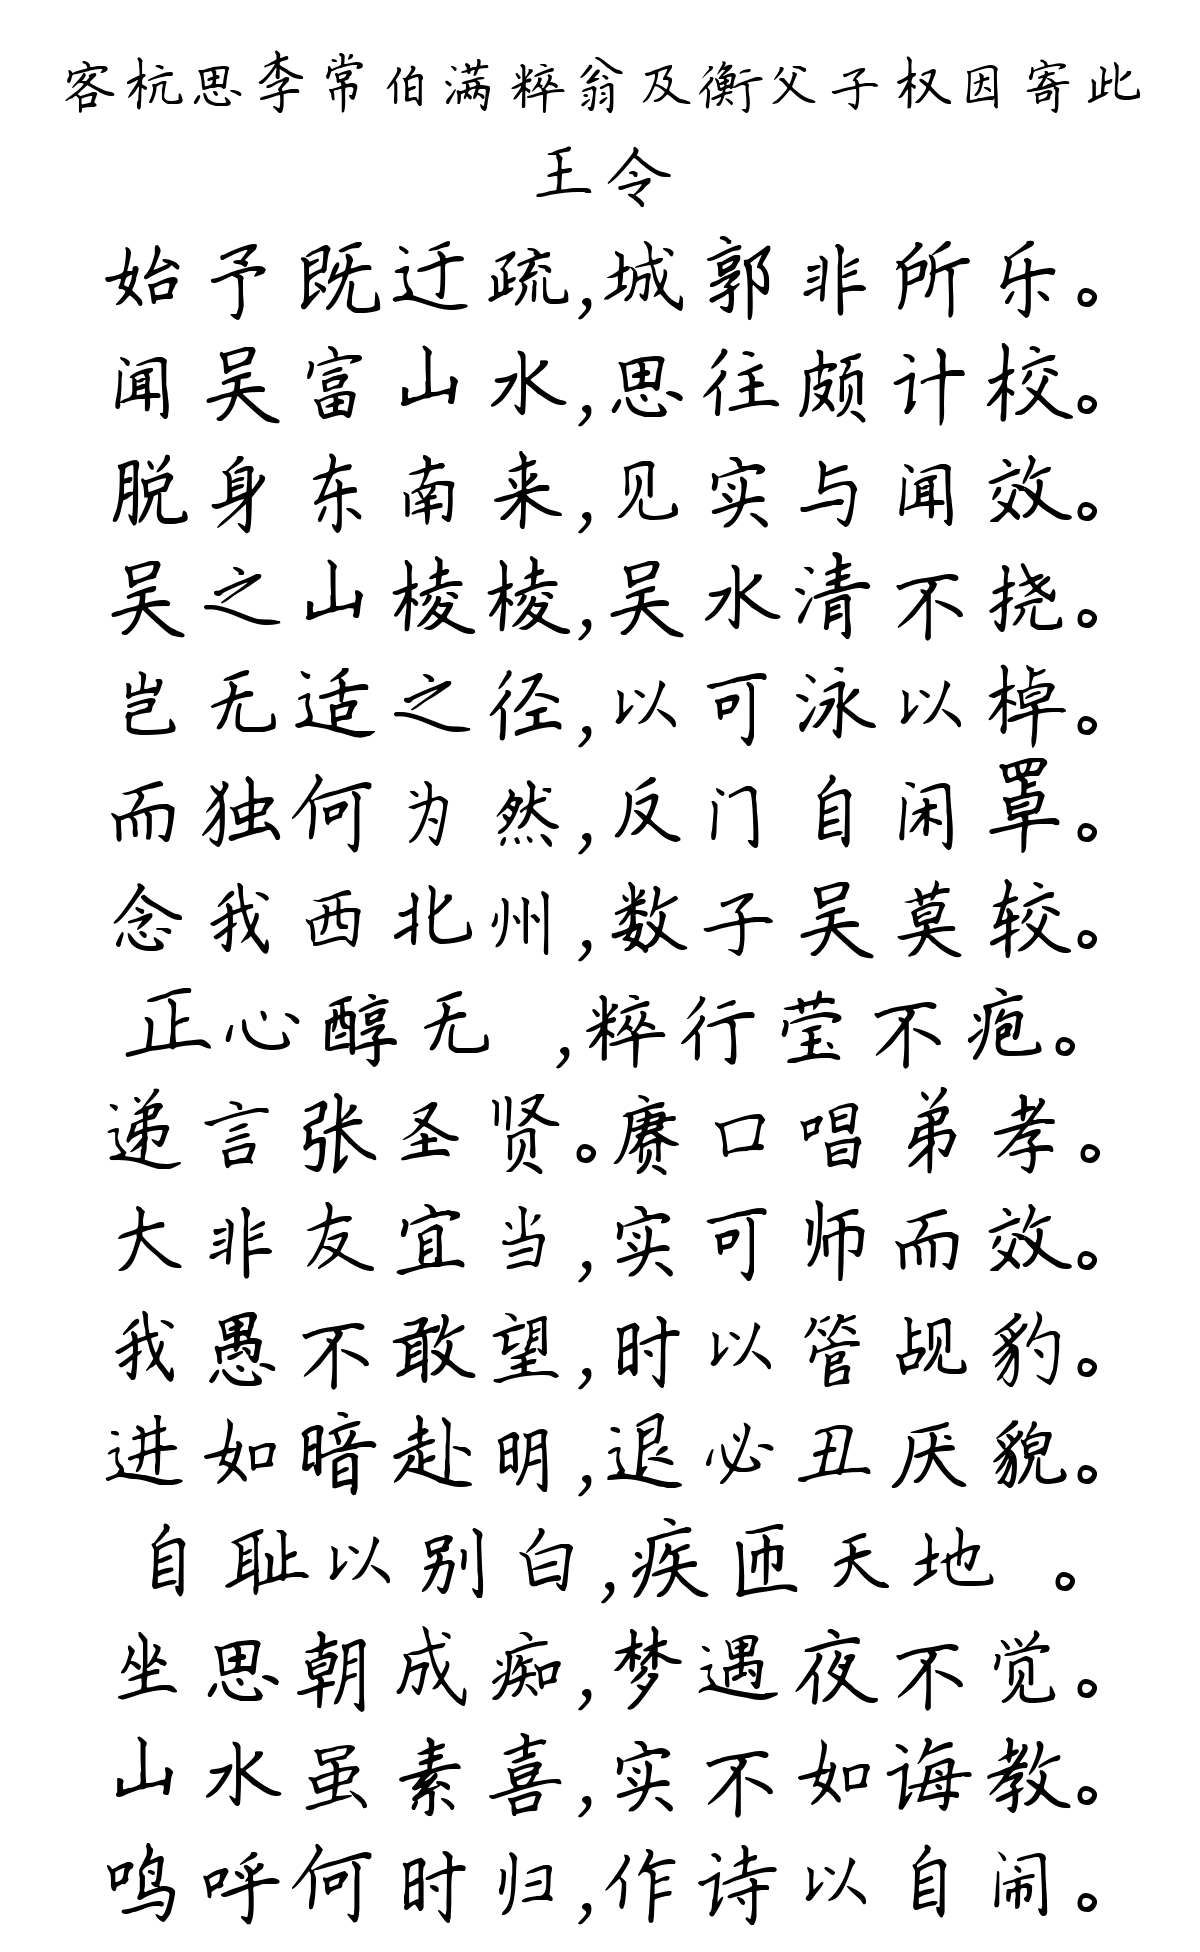 客杭思李常伯满粹翁及衡父子权因寄此
王令
始予既迂疏,城郭非所乐。
闻吴富山水,思往颇计校。
脱身东南来,见实与闻效。
吴之山棱棱,吴水清不挠。
岂无适之径,以可泳以棹。
而独何为然,反门自闲罩。
念我西北州,数子吴莫较。
正心醇无 ,粹行莹不疱。
递言张圣贤。赓口唱弟孝。
大非友宜当,实可师而效。
我愚不敢望,时以管觇豹。
进如暗赴明,退必丑厌貌。
自耻以别白,疾匝天地 。
坐思朝成痴,梦遇夜不觉。
山水虽素喜,实不如诲教。
鸣呼何时归,作诗以自闹。